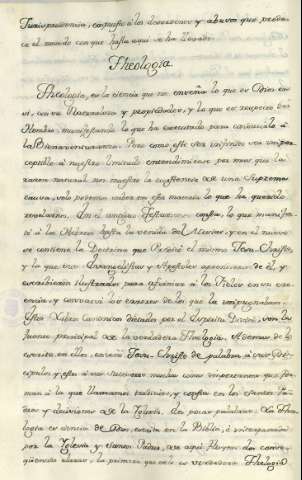 Jurisprudencia, expuesto à los desordenes y abusos que produ-
ce el mundo con que hasta aqui se ha llevado.
Theologia
Theologia, es la ciencia que nos enseña lo que es Dios en
sì, con su Naturaleza y propiedades, y lo que es respecto del
Hombre, manifestando lo que ha executado para conducirlo à
la Bienaventuranza. Pero como este ser infinito no es
à nuestro limitado entendimiento por mas que la
razon natural nos muestre la existencia de una Suprema
causa, solo podemos saber en esta materia lo que ha querido
revelarnos. En el antiguo Testamento consta, lo que manifes-
tò à los Hebreos hasta la venida del Mesias, y en el nuevo
se contiene la Doctrina que Predicò el mismo Jesu-Christo,
y la que sus Evangelistas y Apostoles aprendieron de èl, y
escribieron ilustrados para afirmar à los Fieles en su cre-
encia, y convencer los errores de los que la impugnaban.
Estos Libros Canonicos dictados por el Espiritu Divino, son la
fuente principal de la verdadera Theologia. Ademas de lo
escrito en ellos, enseñò Jesu-Christo de palabra à sus Dis-
cipulos, y estos à sus sucesores muchas cosas importantes que forman
à lo que llamamos tradicion, y consta en los Santos Pa-
dres y doctrina de la Iglesia. En pocas palabras: La Theo-
logia es ciencia de Dios, escrita en la Biblia, è interpretada
por la Iglesia y Santos Padres, de aqui fluyen dos conse-
qüencias claras, la primera que esta es verdadera Theologia